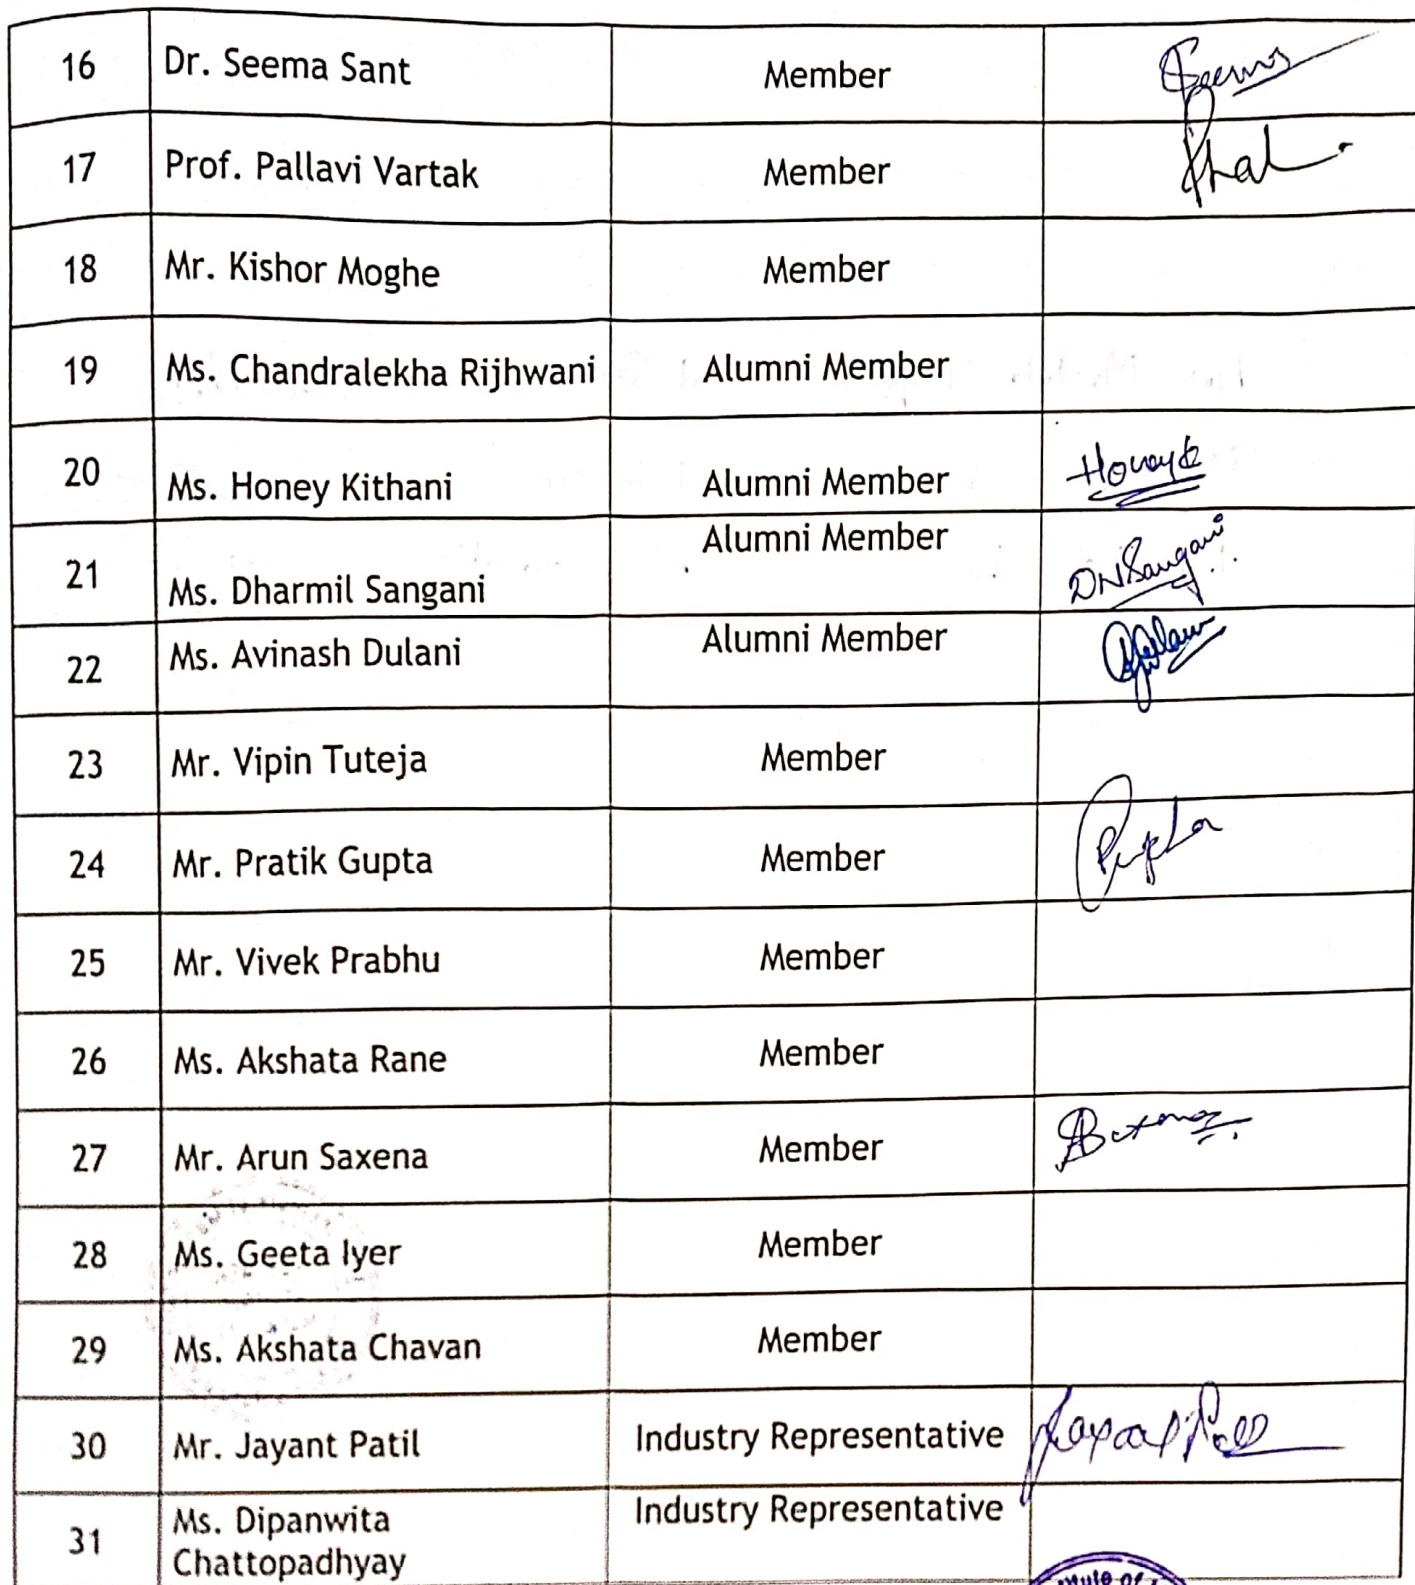 16 Dr. Seema Sant Member Seema
17 Prof. Pallavi Vartak Member
18 Mr. Kishor Moghe Member
19 Ms. Chandralekha Rijhwani Alumni Member
20 Ms. Honey Kithani Alumni Member Honeyk
21 Ms. Dharmil Sangani Alumni Member DNSangani
22 Ms. Avinash Dulani Alumni Member
23 Mr. Vipin Tuteja Member
24 Mr. Pratik Gupta Member
25 Mr. Vivek Prabhu Member
26 Ms. Akshata Rane Member
27 Mr. Arun Saxena Member
28 Ms. Geeta Iyer Member
29 Ms. Akshata Chavan Member
30 Mr. Jayant Patil Industry Representative
31 Ms. Dipanwita Industry Representative
Chattopadhyay